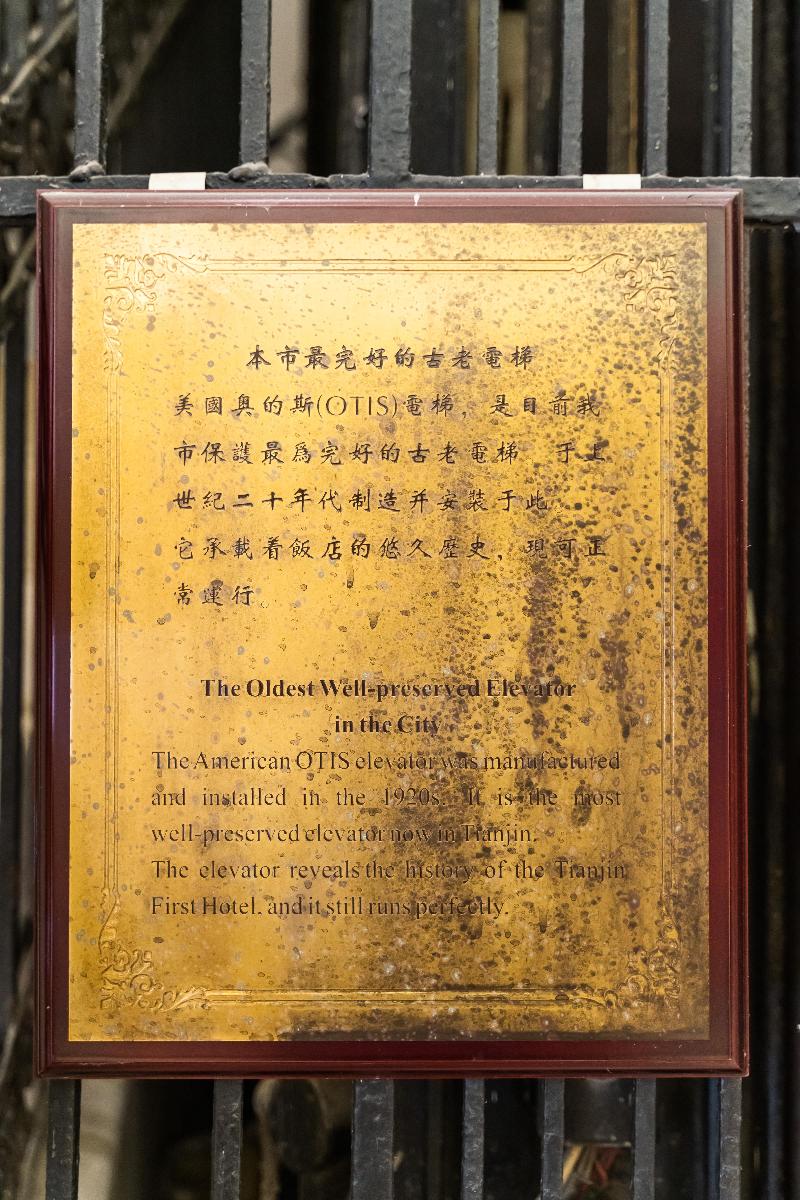 本市最完好的古老電梯
美國奥的斯(OTIS)電梯，是目前我
市保護最爲完好的古老電梯 于上
世紀二十年代制造并安裝于此
它承載着飯店的悠久歷史，現可正
常運行。
The Oldest Well-preserved Elevator
in the City
The American OTIS elevator was manufactured
and installed in the 1920s. It is the most
well-preserved elevator now in Tianjin.
The elevator reveals the history of the Tianjin
First Hotel. and it still runs perfectly.